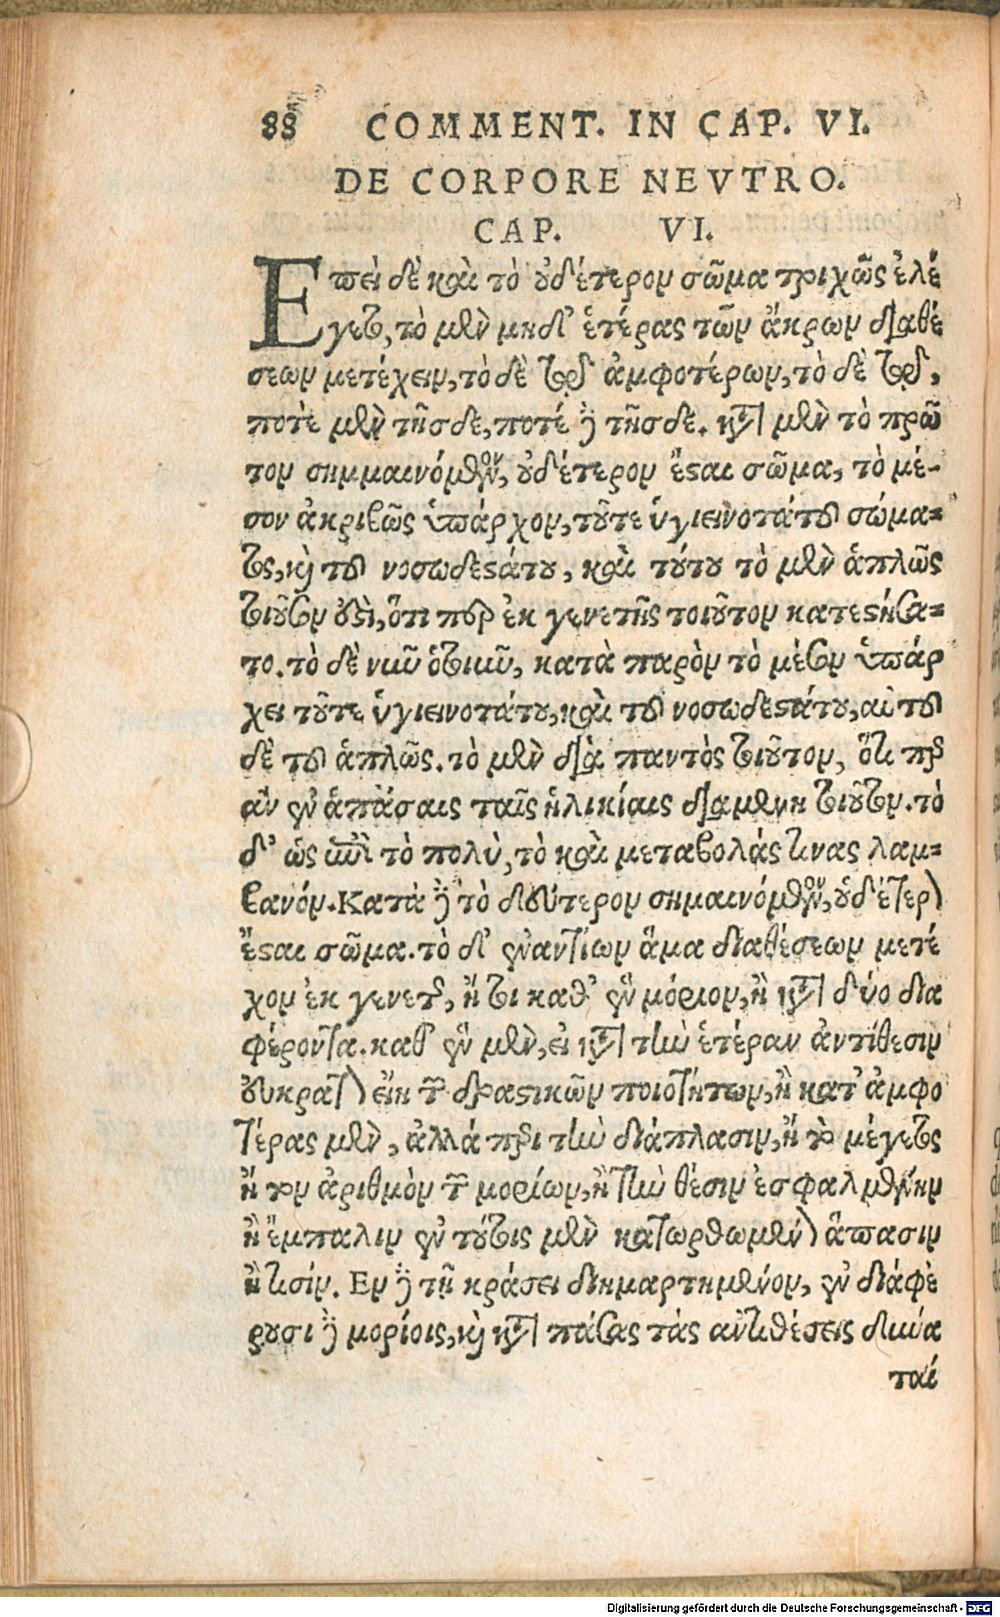 88 COMMENT. IN CAP. VI.
DE CORPORE NEVTRO.
CAP. VI.
Επεὶ δὲ καὶ τὸ οὐδέτερον σῶμα τριχῶς ἐλέ
γετο, τὸ μὲν μηδ' ἑτέρας τῶν ἄκρων διαθέ
σεων μετέχειν, τὸ δὲ τῷ ἀμφοτέρων, τὸ δὲ τῷ,
ποτὲ μὲν τῆσδε, ποτέ δὲ τῆσδε. κατὰ μὲν τὸ πρῶ
τον σημμαινόμενον, οὐδέτερον ἔσαι σῶμα, τὸ μέ-
σον ἀκριβῶς ὑπάρχον, τοῦτε ὑγιεινοτάτου σώμα=
τος, καὶ τοῦ νοσωδεστάτου, καὶ τούτου τὸ μὲν ἁπλῶς
τοιοῦτον ἐστὶ, ὅτι περ ἐκ γενετῆς τοιοῦτον κατεστήσα=
το. τὸ δὲ νῦν ὁτικοῦν, κατὰ παρὸν τὸ μέσον ὑπάρ
χει τοῦτε ὑγιεινοτάτου, καὶ τοῦ νοσωδεστάτου, αὐτοῦ
δὲ τοῦ ἁπλῶς. τὸ μὲν διὰ παντὸς τοιοῦτον, ὅτι περ
ἂν ἐν ἁπάσαις ταῖς ἡλικίαις διαμένῃ τοιοῦτον. τὸ
δ' ὡς ἐπὶ τὸ πολὺ, τὸ καὶ μεταβολάς τινας λαμ=
βανόν. Κατὰ δὲ τὸ δεύτερον σημαινόμενον, οὐδέτερον
ἔσται σῶμα. τὸ δ' ἐναντίων ἅμα διαθέσεων μετέ
χον ἐκ γενετῆς, ἤτοι καθ' ἓν μόριον, ἢ κατὰ δύο δια
φέροντα. καθ' ἓν μὲν, εἰ κατὰ τὴν ἑτέραν ἀντίθεσιν
εὐκρατον εἴη τῶν δραστικῶν ποιοτήτων, ἢ κατ' ἀμφο
τέρας μὲν, ἀλλά περὶ τὴν διάπλασιν, ἢ τὸ μέγεθος
ἢ τὸν ἀριθμὸν τῶν μορίων, ἢ τὴν θέσιν ἐσφαλμένην
ἢ ἔμπαλιν ἐν τούτοις μὲν κατωρθωμένον ἅπασιν
ἢ τισίν. Εν δὲ τῇ κράσει διημαρτημένον, ἐν διάφε
ρουσι δὲ μορίοις, καὶ κατὰ πάσας τὰς ἀντιθέσεις δύνα
ταί
Digitalisierung gefördert durch die Deutsche Forschungsgemeinschaft - DFG